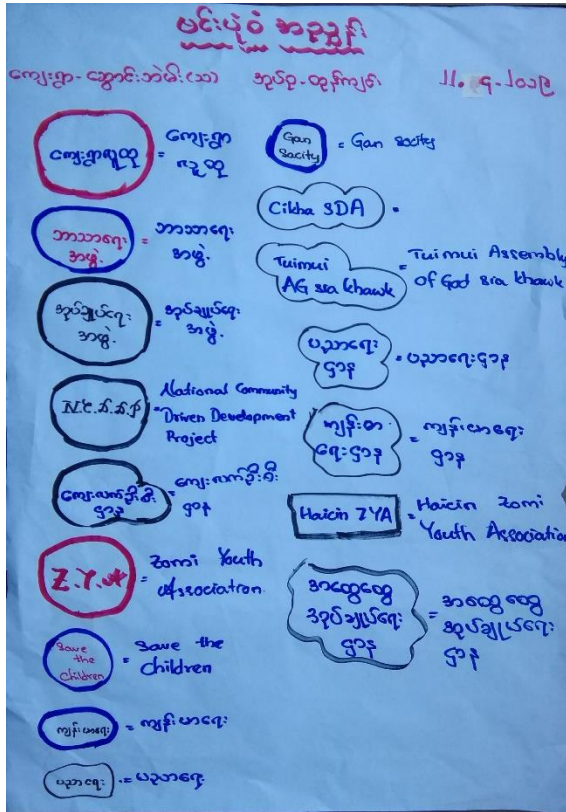 ပင်းပုံဝံ အညွှန်း
ကျေးရွာ-ဆွောင်းဘဲမ်း(သ) အုပ်စု-ထွန်ကျင်း ၂၂.၄.၂၀၁၉
ကျေးရွာလူထု = ကျေးရွာ
လူထု
ဘာသာရေး
အဖွဲ့. = ဘာသာရေး
အဖွဲ့.
အုပ်ချုပ်ရေး
အဖွဲ့. = အုပ်ချုပ်ရေး
အဖွဲ့.
N.C.D.D.P = National Community
Driven Development
Project
ကျေးလက်ဦးစီး
ဌာန = ကျေးလက်ဦးစီး
ဌာန
Z.Y.A = Zomi Youth
Association
Save
the
Children = Save the
Children
ကျန်းမာရေး = ကျန်းမာရေး
ပညာရေး = ပညာရေး
Gan
Sacity = Gan socity
Cikha SDA =
Tuimui
AG sia khawk = Tuimui Assembly
of God sia khawk
ပညာရေး
ဌာန = ပညာရေးဌာန
ကျန်းမာ
ရေးဌာန = ကျန်းမာရေး
ဌာန
Haicin ZYA = Haicin Zomi
Youth Association
အထွေထွေ
အုပ်ချုပ်ရေး
ဌာန = အထွေထွေ
အုပ်ချုပ်ရေး
ဌာန